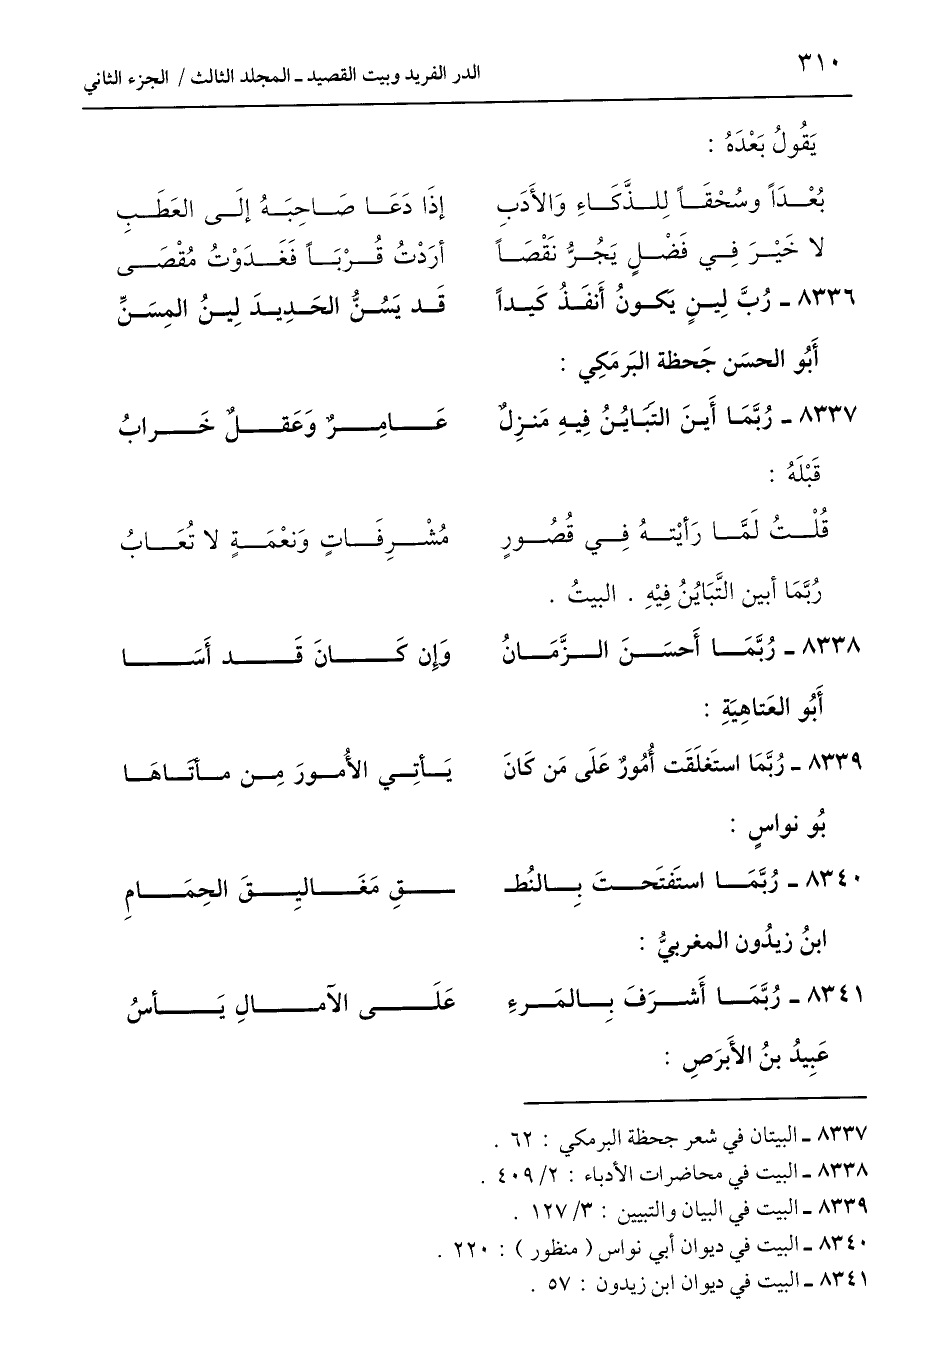 ٣١٠
الدر الفريد وبيت القصيد ـ المجلد الثالث / الجزء الثاني
يَقُولُ بَعْدَهُ :
بُعْدَاً وسُحْقَاً لِلذَّكَاءِ وَالأَدَبِ إذَا دَعَا صَاحِبَهُ إلَى العَطَبِ
لا خَيْرَ فِي فَضْلٍ يَجُرُّ نَقْصَاً أرَدْتُ قُرْبَاً فَغَدَوْتُ مُقْصَى
٨٣٣٦ ـ رُبَّ لِينٍ يَكونُ أنفَذُ كَيداً قَد يَسُنُّ الحَديدَ لِينُ المِسَنِّ
أَبُو الحسَن جَحظة البَرمَكِي :
٨٣٣٧ ـ رُبَّمَا أَينَ التبَايُنُ فِيهِ مَنزِلٌ عَامِرٌ وَعَقلٌ خَرابُ
قَبْلَهُ :
قُلْتُ لَمَّا رَأيْتهُ فِي قُصُورٍ مُشْرِفَاتٍ وَنَعْمَةٍ لا تُعَابُ
رُبَّمَا أبين التَّبَايُنُ فِيْهِ . البيتُ .
٨٣٣٨ ـ رُبَّمَا أَحسَنَ الزَّمَانُ وَإن كَانَ قَد أَسَا
أَبُو العَتاهِيَةِ :
٨٣٣٩ ـ رُبَّمَا استَغلَقَت أُمُورٌ عَلَى مَن كَانَ يَأتِي الأُمورَ مِن مأتَاهَا
بُو نواسٍ :
٨٣٤٠ ـ رُبَّمَا استَفتَحتَ بِالنُطـ ـقِ مَغَاليِقَ الحِمَامِ
ابنُ زيدُون المغربيُّ :
٨٣٤١ ـ رُبَّمَا أَشرَفَ بِالمَرءِ عَلَى الآمالِ يَأسُ
عَبِيدُ بنُ الأَبرَصِ :
٨٣٣٧ ـ البيتان في شعر جحظة البرمكي : ٦٢ .
٨٣٣٨ ـ البيت في محاضرات الأدباء : ٢/ ٤٠٩ .
٨٣٣٩ ـ البيت في البيان والتبيين : ٣/ ١٢٧ .
٨٣٤٠ ـ البيت في ديوان أبي نواس ( منظور ) : ٢٢٠ .
٨٣٤١ ـ البيت في ديوان ابن زيدون : ٥٧ .